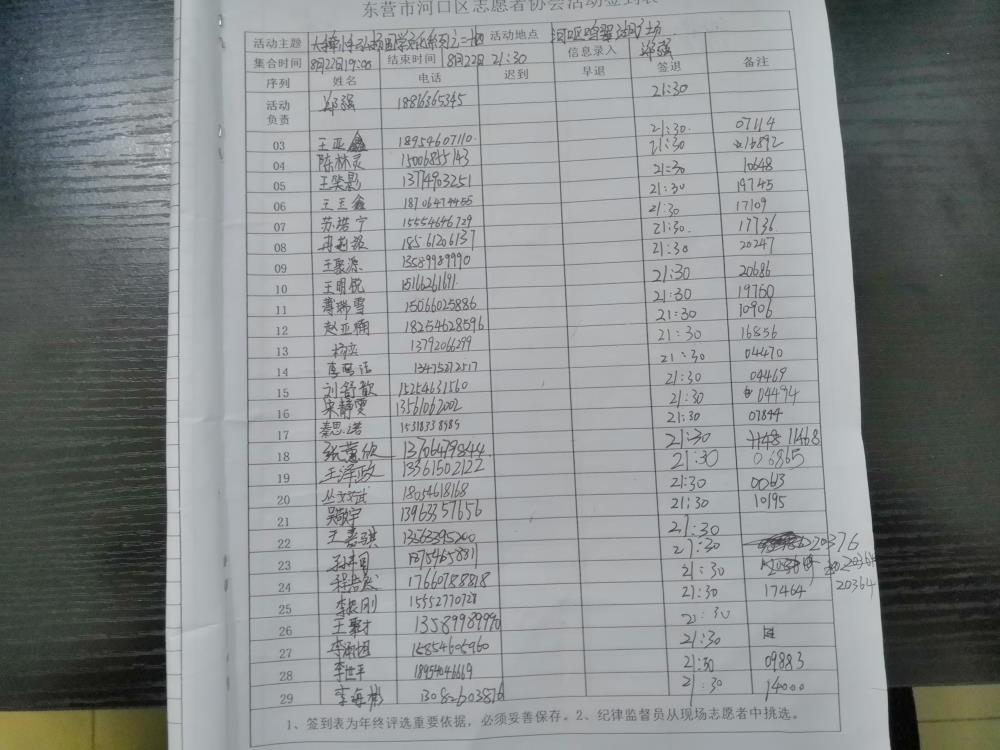 东营市河口区志愿者协会活动签到表
活动主题 活动地点
集合时间 8月22日19:00 结束时间 8月22日 21:30 信息录入 郑强
序列 姓名 电话 迟到 早退 签退 备注
活动负责 郑强 18816365345 21:30
03 王亚鑫 18954607110 21:30 07114
04 陈林灵 15006855143 21:30 16892
05 王笑影 1374903251 21:30 10648
06 王玉鑫 18706474455 21:30 19745
07 苏珺宁 15554646729 21:30 17109
08 18561206137 21:30 17736
09 王聚源 13589989990 21:30 20247
10 王明锐 15166261691 21:30 20686
11 薄瑞雪 15066025886 21:30 19760
12 赵亚楠 18254628596 21:30 10906
13 13792066299 21:30 16856
14 13475272517 21:30 04470
15 刘舒歆 15254631560 21:30 04469
16 宋静雯 13561062002 21:30 04494
17 秦思诺 15318338989 21:30 07844
18 13706479844 21:30 11468
19 王泽政 13361502122 21:30 06865
20 丛文武 18054618168 21:30 0063
21 13963357656 21:30 10195
22 王嘉琪 21:30
23 21:30 20376
24 17660788818 21:30 20364
25 李振刚 15552770728 21:30 17464 20364
26 王聚才 13589989990
27 15854605960 21:30
28 李世平 18954046669 21:30 09883
29 李海彬 13082603876 21:30 14000
1、签到表为年终评选重要依据，必须妥善保存。2、纪律监督员从现场志愿者中挑选。